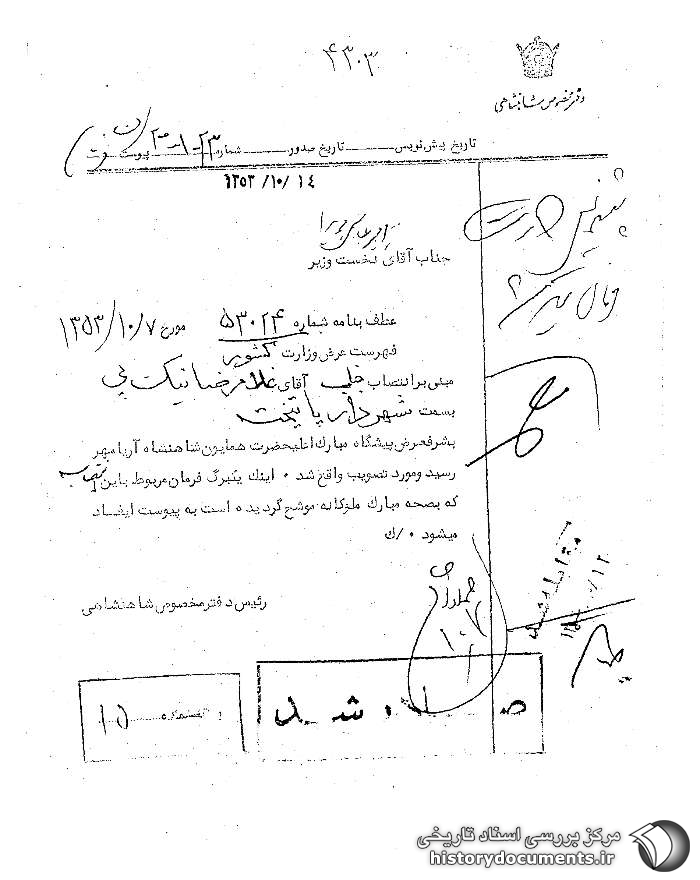 ۴۳۰۳
دفتر مخصوص شاهنشاهی
تاریخ پیش نویس ـــــ تاریخ صدور ـــــ شماره ۲۳-۱-۲۰ پیوست
۱۳۵۳/۱۰/۱۴
جناب آقای نخست وزیر
عطف بنامه شماره ۵۳۰۲۴ مورخ ۱۳۵۳/۱۰/۷
فهرست عرض وزارت کشور
مبنی بر انتصاب جناب آقای غلامرضا نیک پی
بسمت شهردار پایتخت
بشرفعرض پیشگاه مبارک اعلیحضرت همایون شاهنشاه آریامهر
رسید و مورد تصویب واقع شد ۰ اینک یکبرگ فرمان مربوط باین انتصاب
که بصحه مبارک ملوکانه موشح گردیده است به پیوست ایفاد
میشود ۰ /ک
رئیس دفتر مخصوص شاهنشاهی
مقابله شد
صادر شد
۱۰۵
مرکز بررسی اسناد تاریخی
historydocuments.ir